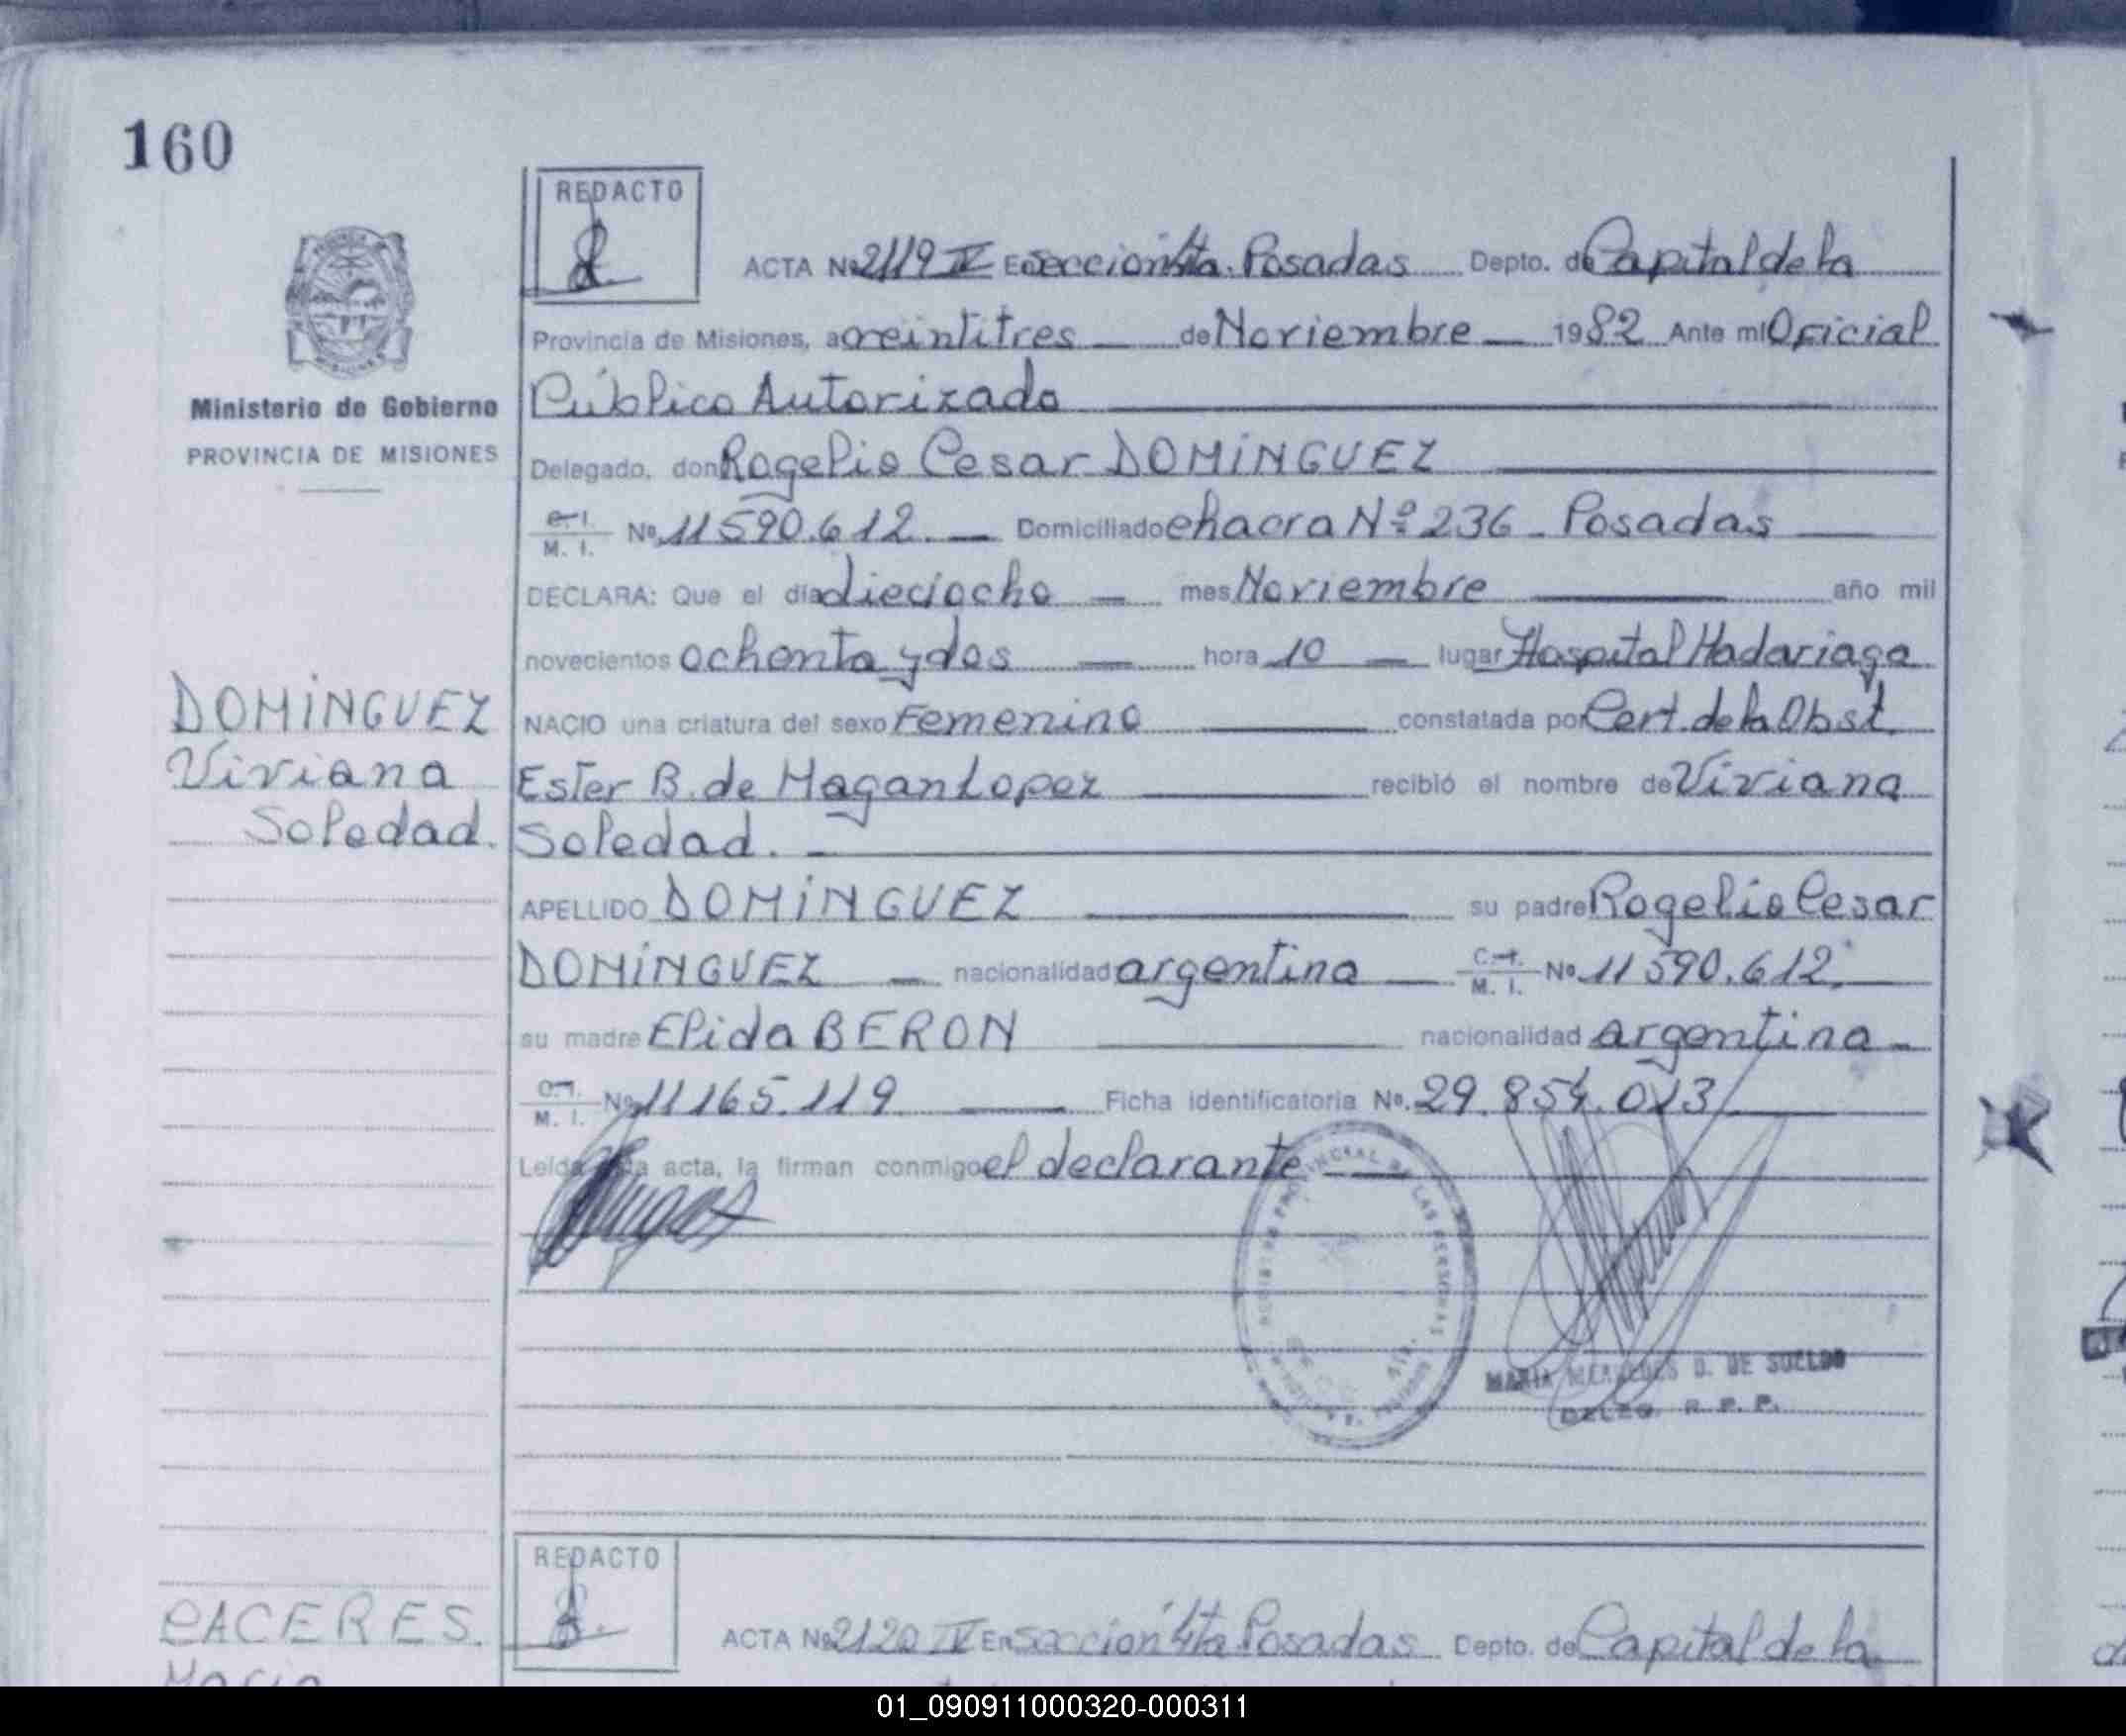 160
REDACTO
ACTA Nº 2119 IV En Sección 4ta. Posadas Depto. de Capital de la
Provincia de Misiones, a veintitres de Noviembre 1982 Ante mí Oficial
Ministerio de Gobierno
PROVINCIA DE MISIONES
Público Autorizado
Delegado, don Rogelio Cesar DOMíNGUEZ
C. I. M. I. Nº 11590.612. Domiciliado chacra Nº 236 - Posadas
DECLARA: Que el día dieciocho mes Noviembre año mil
novecientos ochenta y dos hora 10 lugar Hospital Madariaga
DOMíNGUEZ
Viviana
Soledad.
NACIO una criatura del sexo Femenino constatada por Cert. de la Obst.
Ester B. de Magan Lopez recibió el nombre de Viviana
Soledad.
APELLIDO DOMíNGUEZ su padre Rogelio Cesar
DOMíNGUEZ nacionalidad argentina C. I. M. I. Nº 11590.612.
su madre Elida BERON nacionalidad argentina
C. I. M. I. Nº 11165.119 Ficha identificatoria Nº. 29.854.013
Leída acta, la firman conmigo el declarante
PROVINCIAL DE LAS PERSONAS
MARIA MERCEDES D. DE SUELDO
DELEG. R. P. P.
REDACTO
CACERES.
ACTA Nº 2120 IV En Sección 4ta Posadas Depto. de Capital de la
01_090911000320-000311